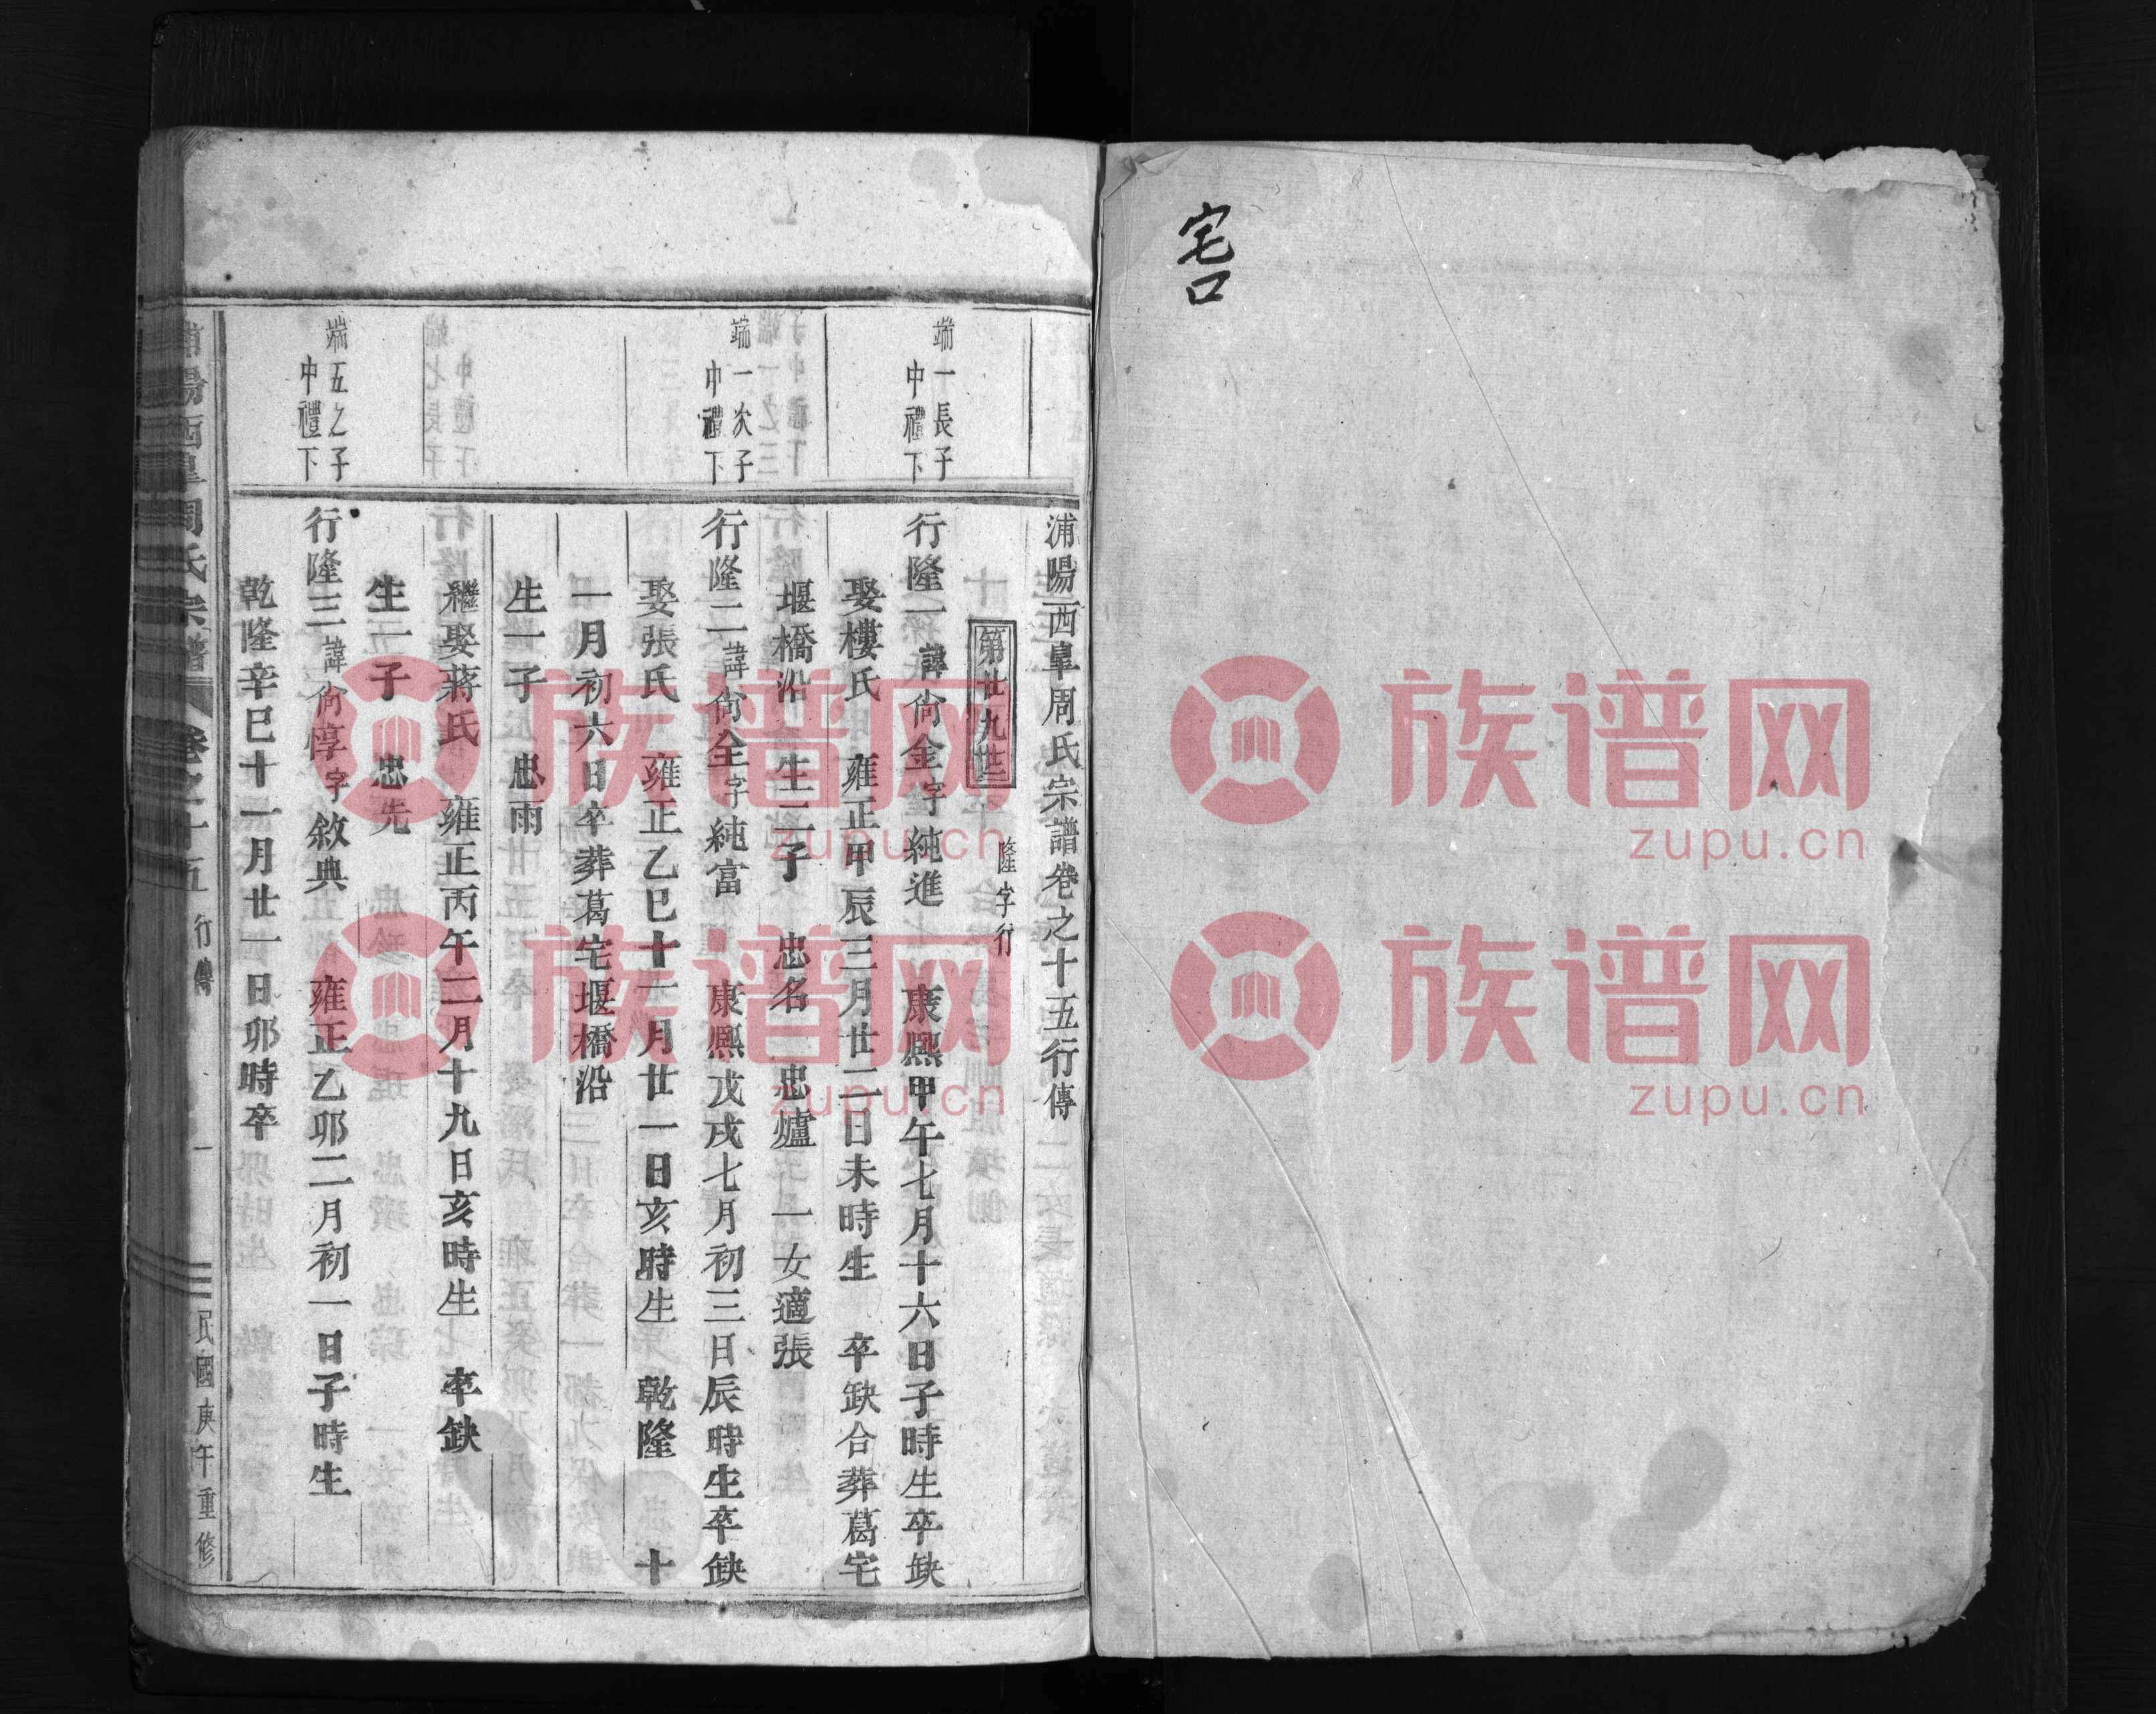 宅口
浦陽西皐周氏宗譜卷之十五行傳
第廿九世
隆字行
端一長子
中禮下
行隆一諱尙金字純進 康熙甲午七月十六日子時生卒缺
娶樓氏 雍正甲辰三月廿二日未時生 卒缺合葬葛宅
堰橋沿 生二子 忠名 忠爐 一女適張
端一次子
中禮下
行隆二諱尙全字純富 康熙戊戌七月初三日辰時生卒缺
娶張氏 雍正乙巳十一月廿一日亥時生 乾隆 十
一月初六日卒葬葛宅堰橋沿
生一子 忠雨
繼娶蔣氏 雍正丙午二月十九日亥時生 卒缺
生一子 忠先
端五之子
中禮下
行隆三諱尙惇字敘典 雍正乙卯二月初一日子時生
乾隆辛巳十一月廿一日卯時卒
浦陽西皐周氏宗譜 卷之十五 行傳 一 民國庚午重修
族谱网
zupu.cn
族谱网
zupu.cn
族谱网
zupu.cn
族谱网
zupu.cn